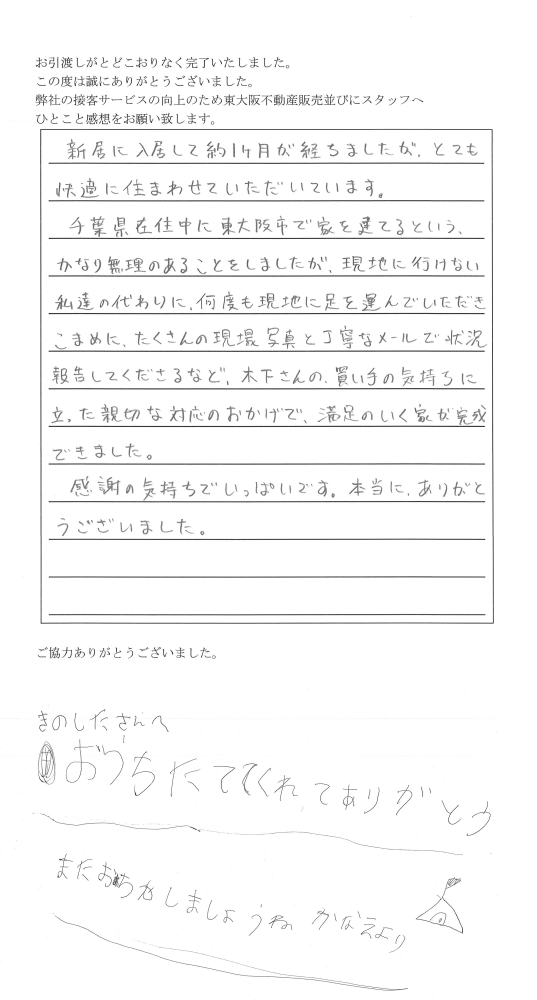 お引渡しがとどこおりなく完了いたしました。
この度は誠にありがとうございました。
弊社の接客サービスの向上のため東大阪不動産販売並びにスタッフへ
ひとこと感想をお願い致します。
新居に入居して約1ヶ月が経ちましたが、とても
快適に住まわせていただいています。
千葉県在住中に東大阪市で家を建てるという、
かなり無理のあることをしましたが、現地に行けない
私達の代わりに、何度も現地に足を運んでいただき
こまめに、たくさんの現場写真と丁寧なメールで状況
報告してくださるなど、木下さんの、買い手の気持ちに
立った親切な対応のおかげで、満足のいく家が完成
できました。
感謝の気持ちでいっぱいです。本当に、ありがと
うございました。
ご協力ありがとうございました。
きのしたさんへ
おうちたててくれてありがとう
またおちかしましょうね かなえより